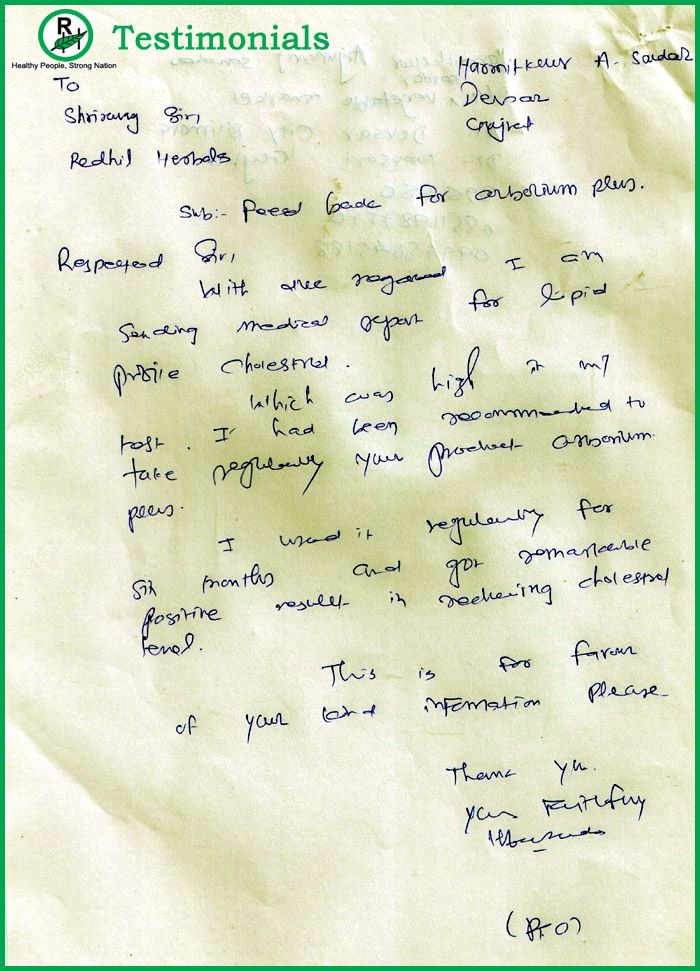 R
Testimonials
Healthy People, Strong Nation
Harmitkeur A. Sardar
Devsar
Gujrat
To
Shrirang Sir,
Redhil Herbals
Sub:- Feed back for arborium plus.
Respected Sir,
With due regared I am
Sending medical report for lipid
profile cholestrol.
Which was high in my
test. I had been recommended to
take regularly your product arborium
plus.
I used it regularly for
Six months and got remarkable
positive result in reducing cholestrol
level.
This is for favour
of your kind information please
Thank you.
Your Faithfully
(P.T.O)